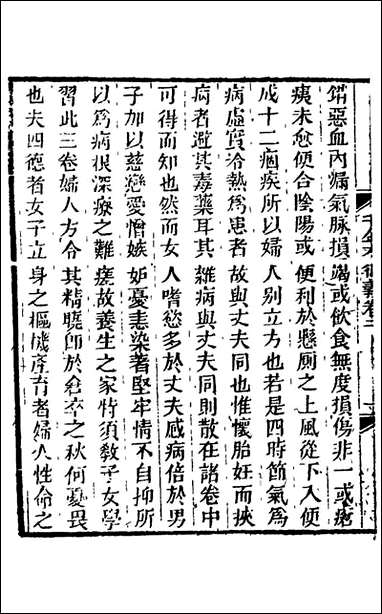 錯惡血內漏氣脉損竭或飲食無度損傷非一或瘡
痍未愈便合陰陽或便利於懸厠之上風從下入便
成十二痼疾所以婦人別立方也若是四時節氣爲
病虛實冷熱爲患者故與丈夫同也惟懷胎妊而挾
病者避其毒藥耳其雜病與丈夫同則散在諸卷中
可得而知也然而女人嗜慾多於丈夫感病倍於男
子加以慈戀愛憎嫉妬憂恚染著堅牢情不自抑所
以爲病根深療之難瘥故養生之家特須敎子女學
習此三卷婦人方令其精曉即於倉卒之秋何憂畏
也夫四德者女子立身之樞機產育者婦人性命之